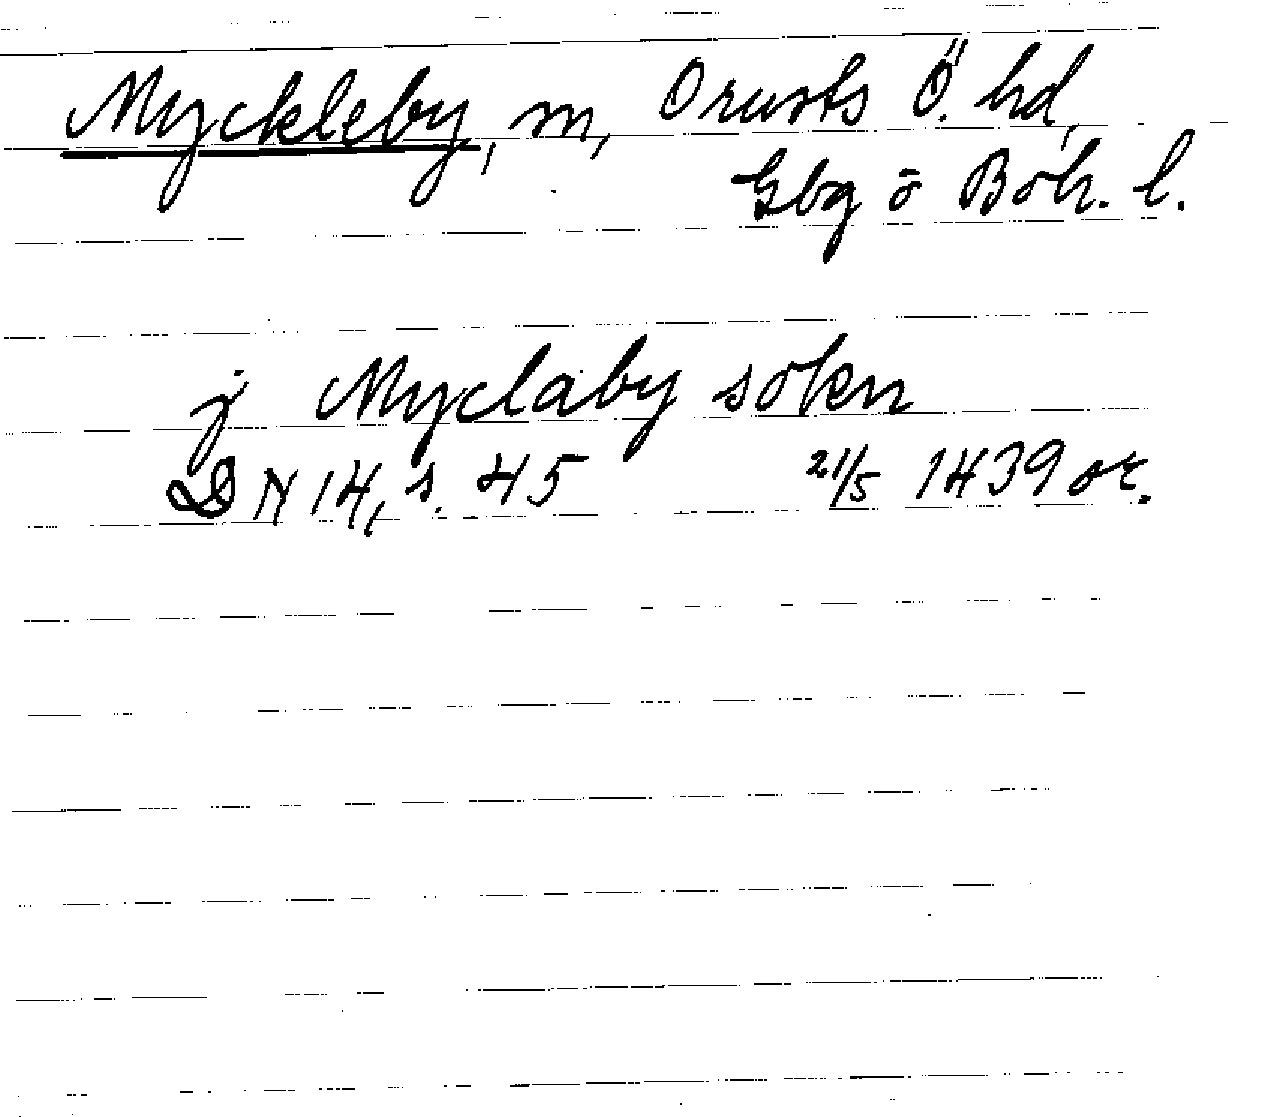 Myckleby, sn, Orusts Ö. hd,
Gbg o Boh. l.
j Myclaby sokn
DN 14, s. 45 21/5 1439 or.